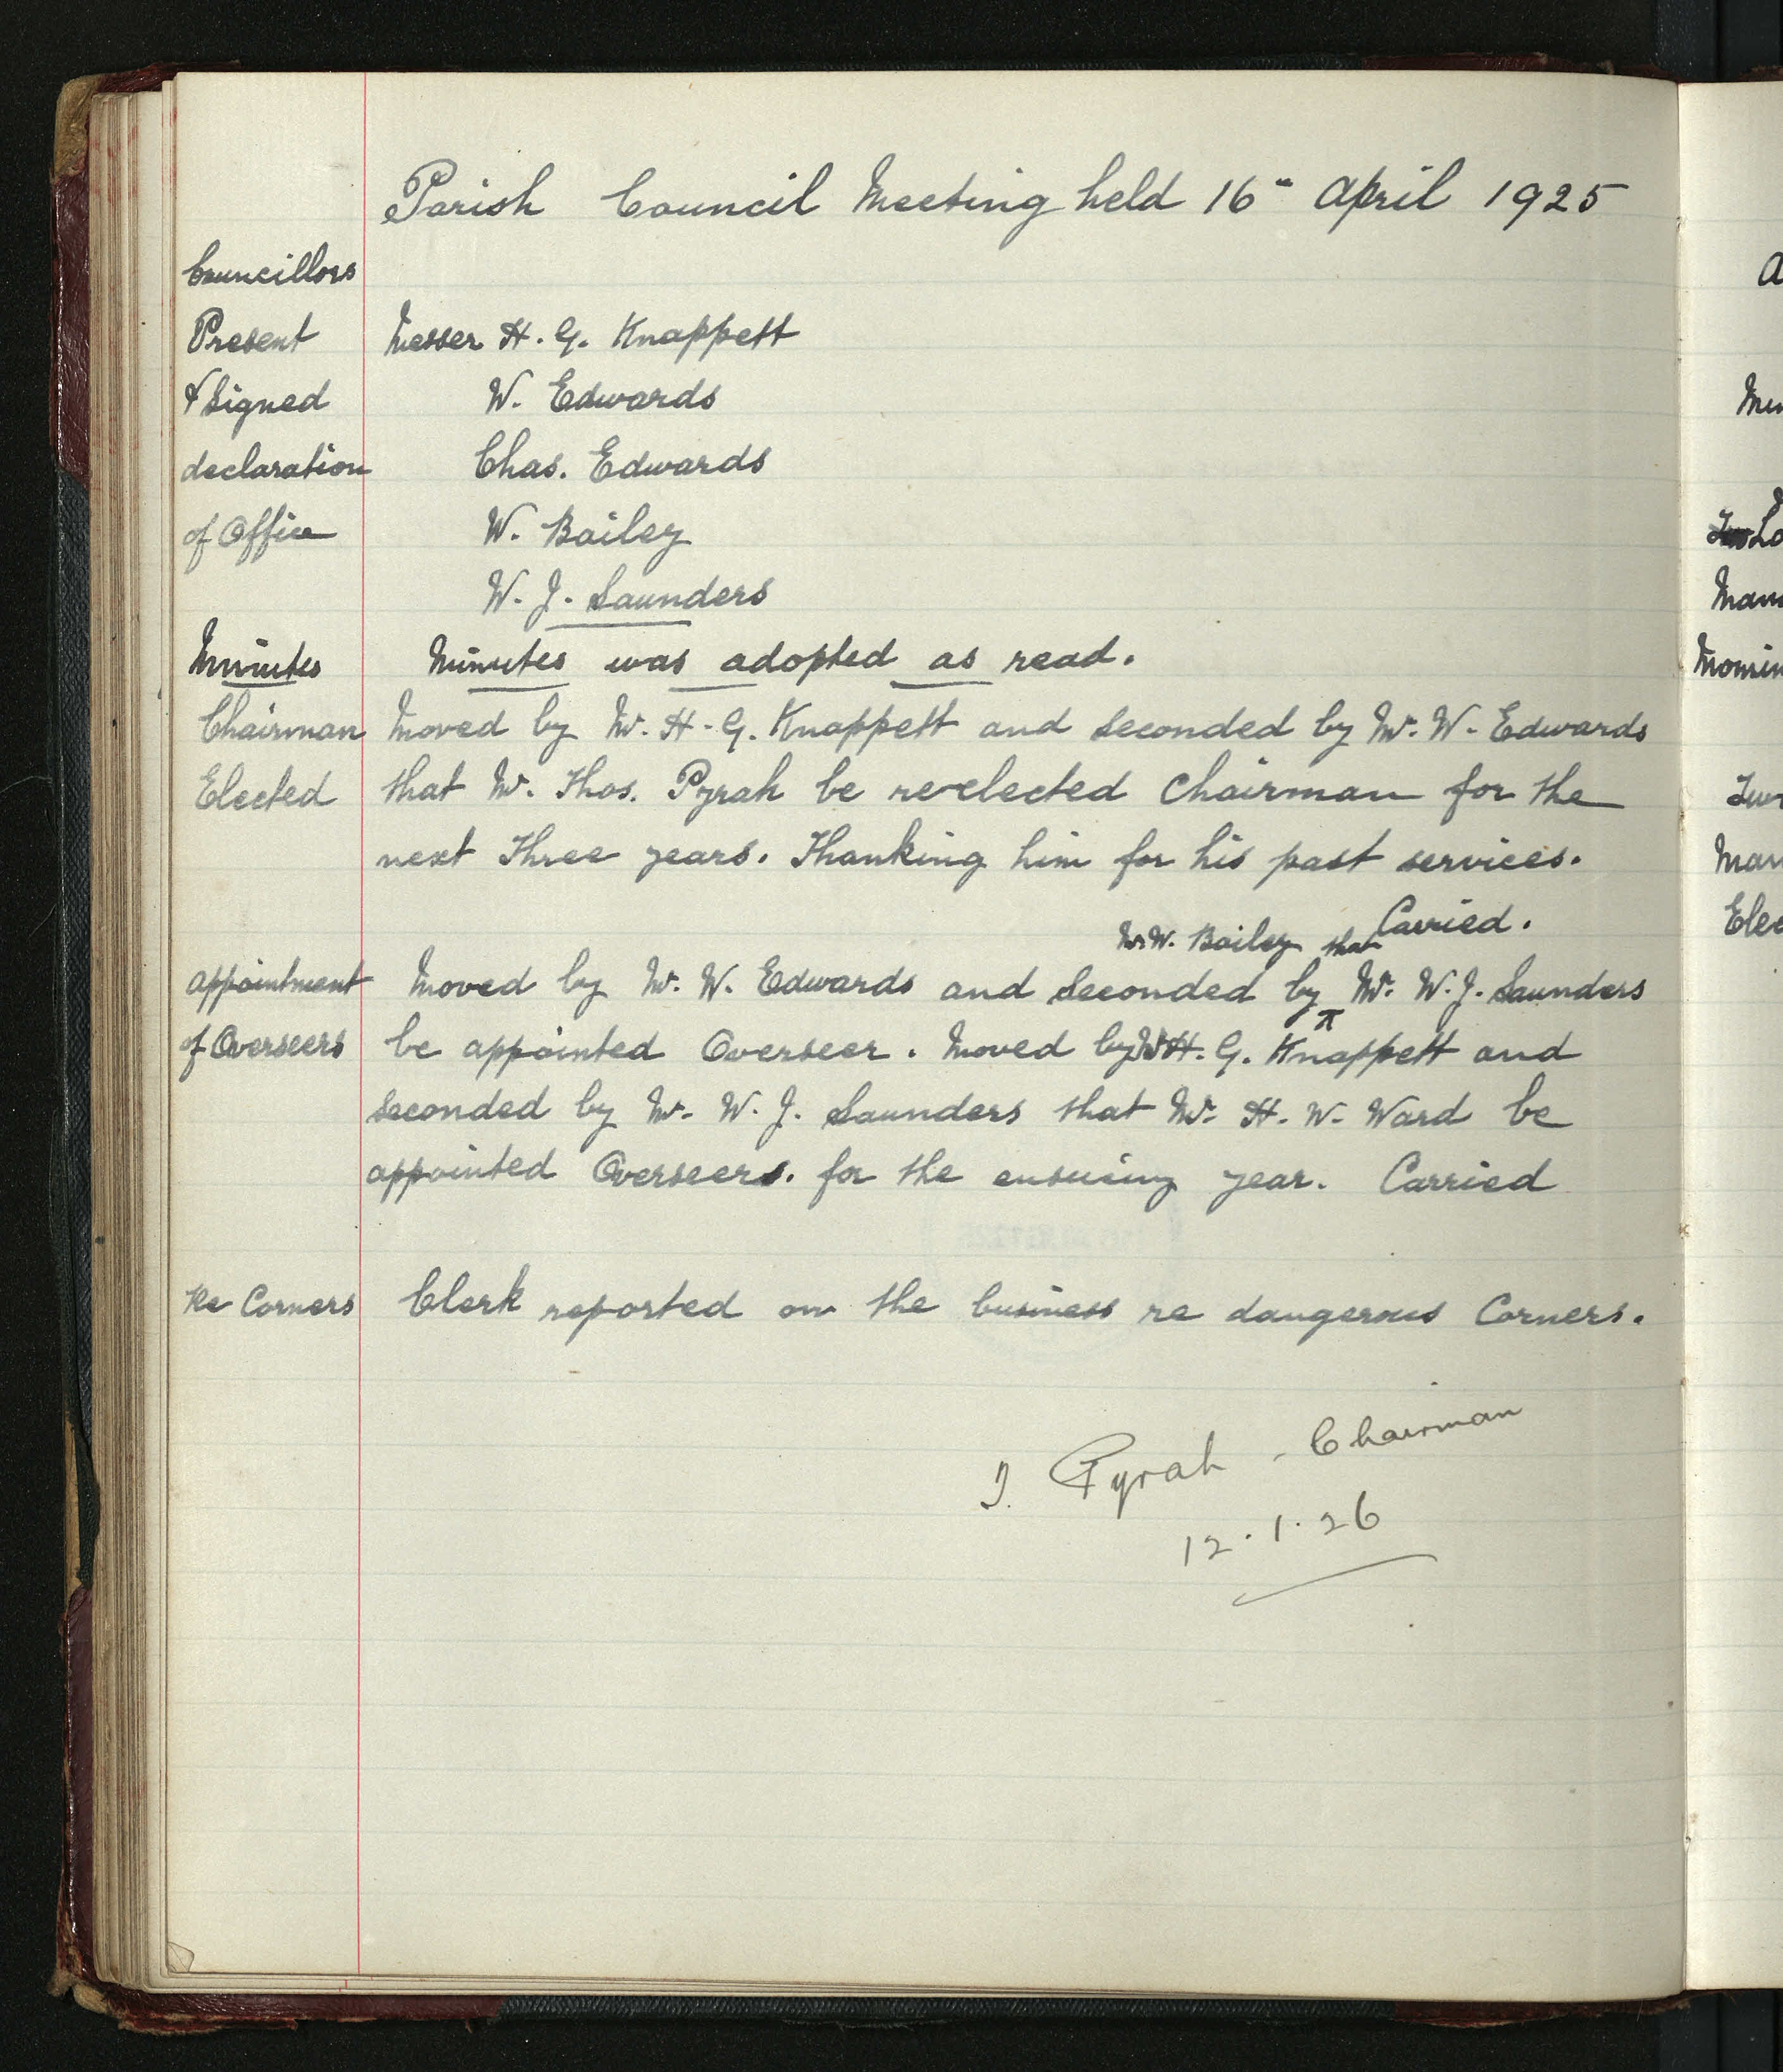 Parish Council Meeting held 16th April 1925
Councillors
Present Messer H. G. Knappett
& Signed W. Edwards
declaration Chas. Edwards
of Office W. Bailey
W. J. Saunders
Minutes Minutes was adopted as read.
Chairman Moved by Mr. H. G. Knappett and Seconded by Mr. W. Edwards
Elected that Mr. Thos. Pyrah be re-elected Chairman for the
next Three years. Thanking him for his past services.
Carried.
Mr W. Bailey that
appointment Moved by Mr. W. Edwards and Seconded by Mr. W. J. Saunders
of Overseers be appointed Overseer. Moved by Mr H. G. Knappett and
Seconded by Mr. W. J. Saunders that Mr. H. W. Ward be
appointed Overseers. for the ensuing year. Carried
Re Corners Clerk reported on the business re dangerous Corners.
T. Pyrah - Chairman
12.1.26